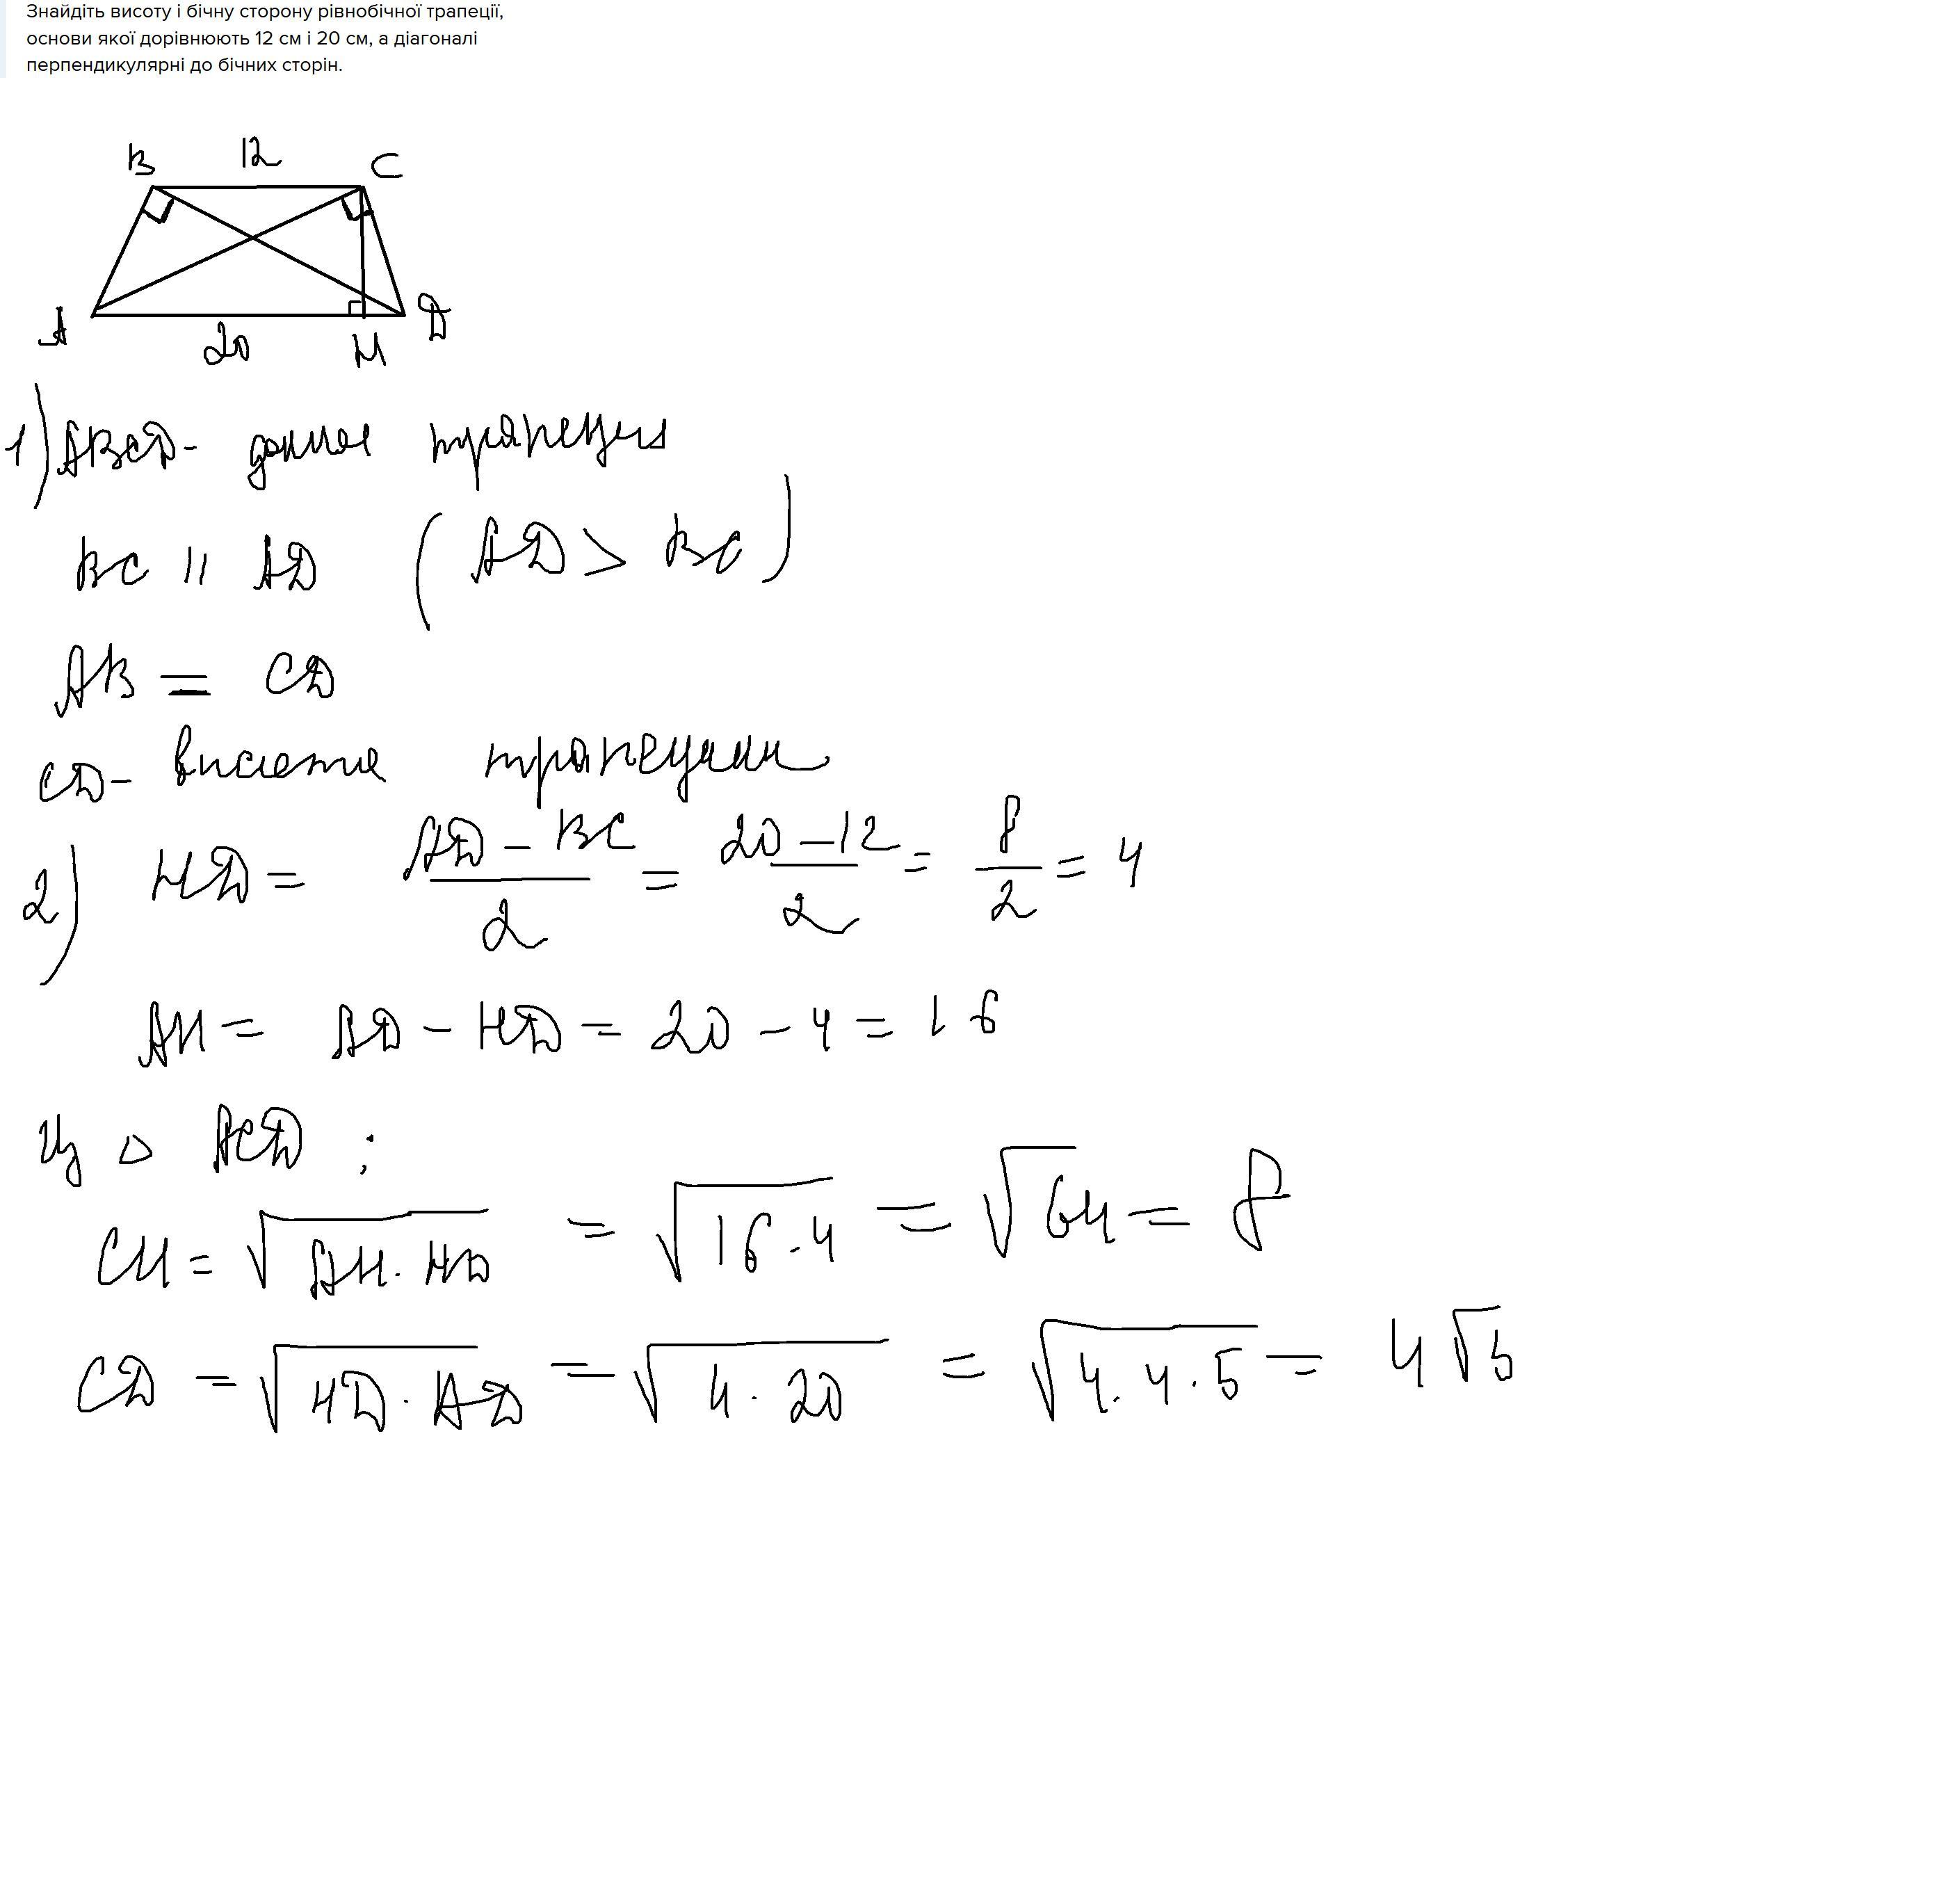 Знайдіть висоту і бічну сторону рівнобічної трапеції,
основи якої дорівнюють 12 см і 20 см, а діагоналі
перпендикулярні до бічних сторін.
B 12 C
A 20 H D
1) ABCD - даная трапеция
BC || AD (AD > BC)
AB = CD
CD - висота трапеции
2) HD = (AD - BC)/2 = (20 - 12)/2 = 8/2 = 4
AH = AD - HD = 20 - 4 = 16
Из △ ACD :
CH = √(AH · HD) = √(16 · 4) = √64 = 8
CD = √(HD · AD) = √(4 · 20) = √(4 · 4 · 5) = 4√5